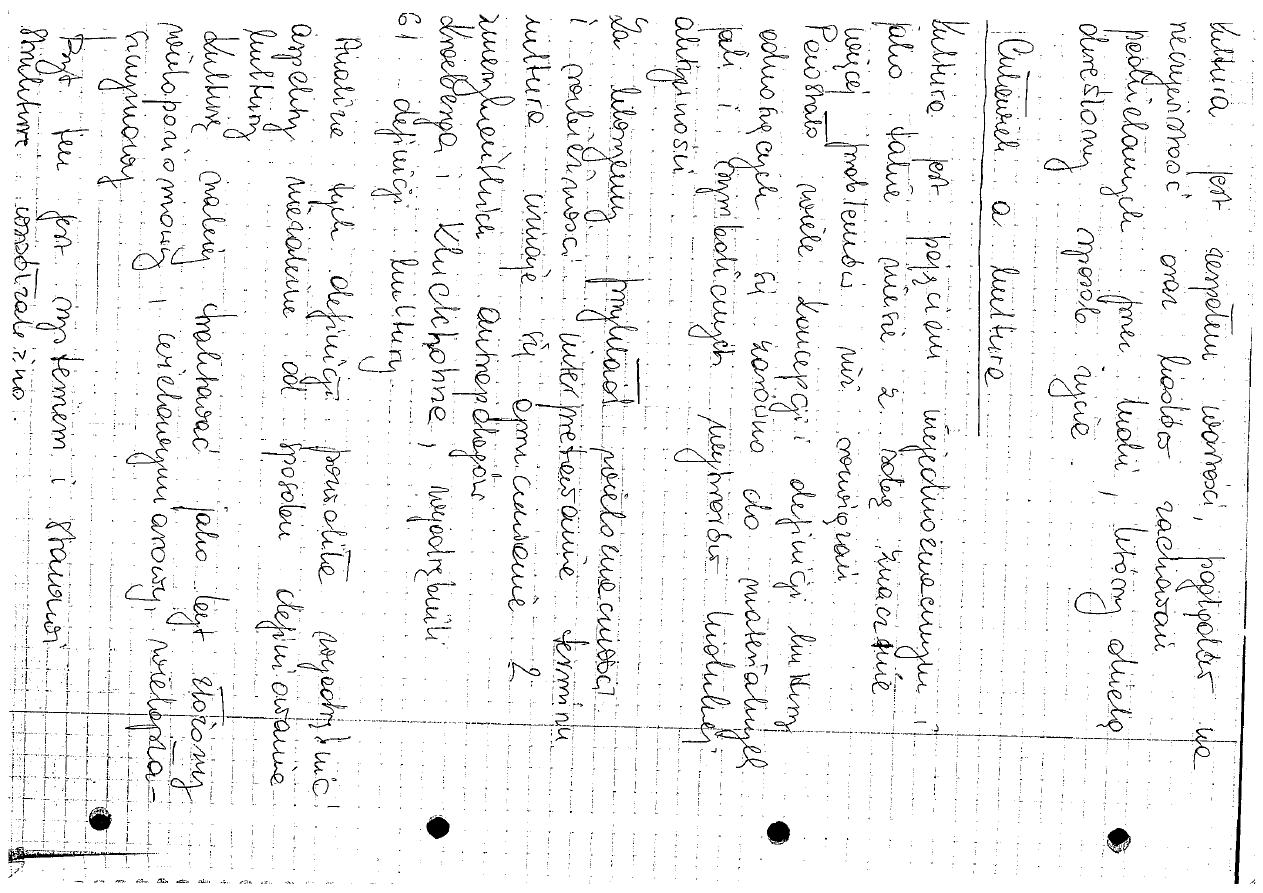 Kultura jest zespołem wartości, poglądów na
rzeczywistość oraz kodów zachowań
podzielanych przez ludzi, którzy dzielą
określony sposób życia.
Człowiek a kultura
Kultura jest pojęciem niejednoznacznym i
jako takie niesie z sobą znacznie
więcej problemów niż rozwiązań
Powstało wiele koncepcji i definicji kultury
odnoszących się zarówno do materialnych
jak i symbolicznych wytworów ludzkiej
aktywności.
Za klasyczny przykład wieloznaczności
i rozbieżności interpretowania terminu
kultura uznaje się opracowanie 2
amerykańskich antropologów
Kroebera i Kluckhohna, wyodrębnili
61 definicji kultury.
Analiza tych definicji pozwoliła wyodrębnić
aspekty niezależne od sposobu definiowania
kultury
Kulturę należy traktować jako byt złożony
wielopoziomowy i wielowymiarowy, wielopła-
szczyznowy
Byt ten jest systemem i stanowi
strukturę